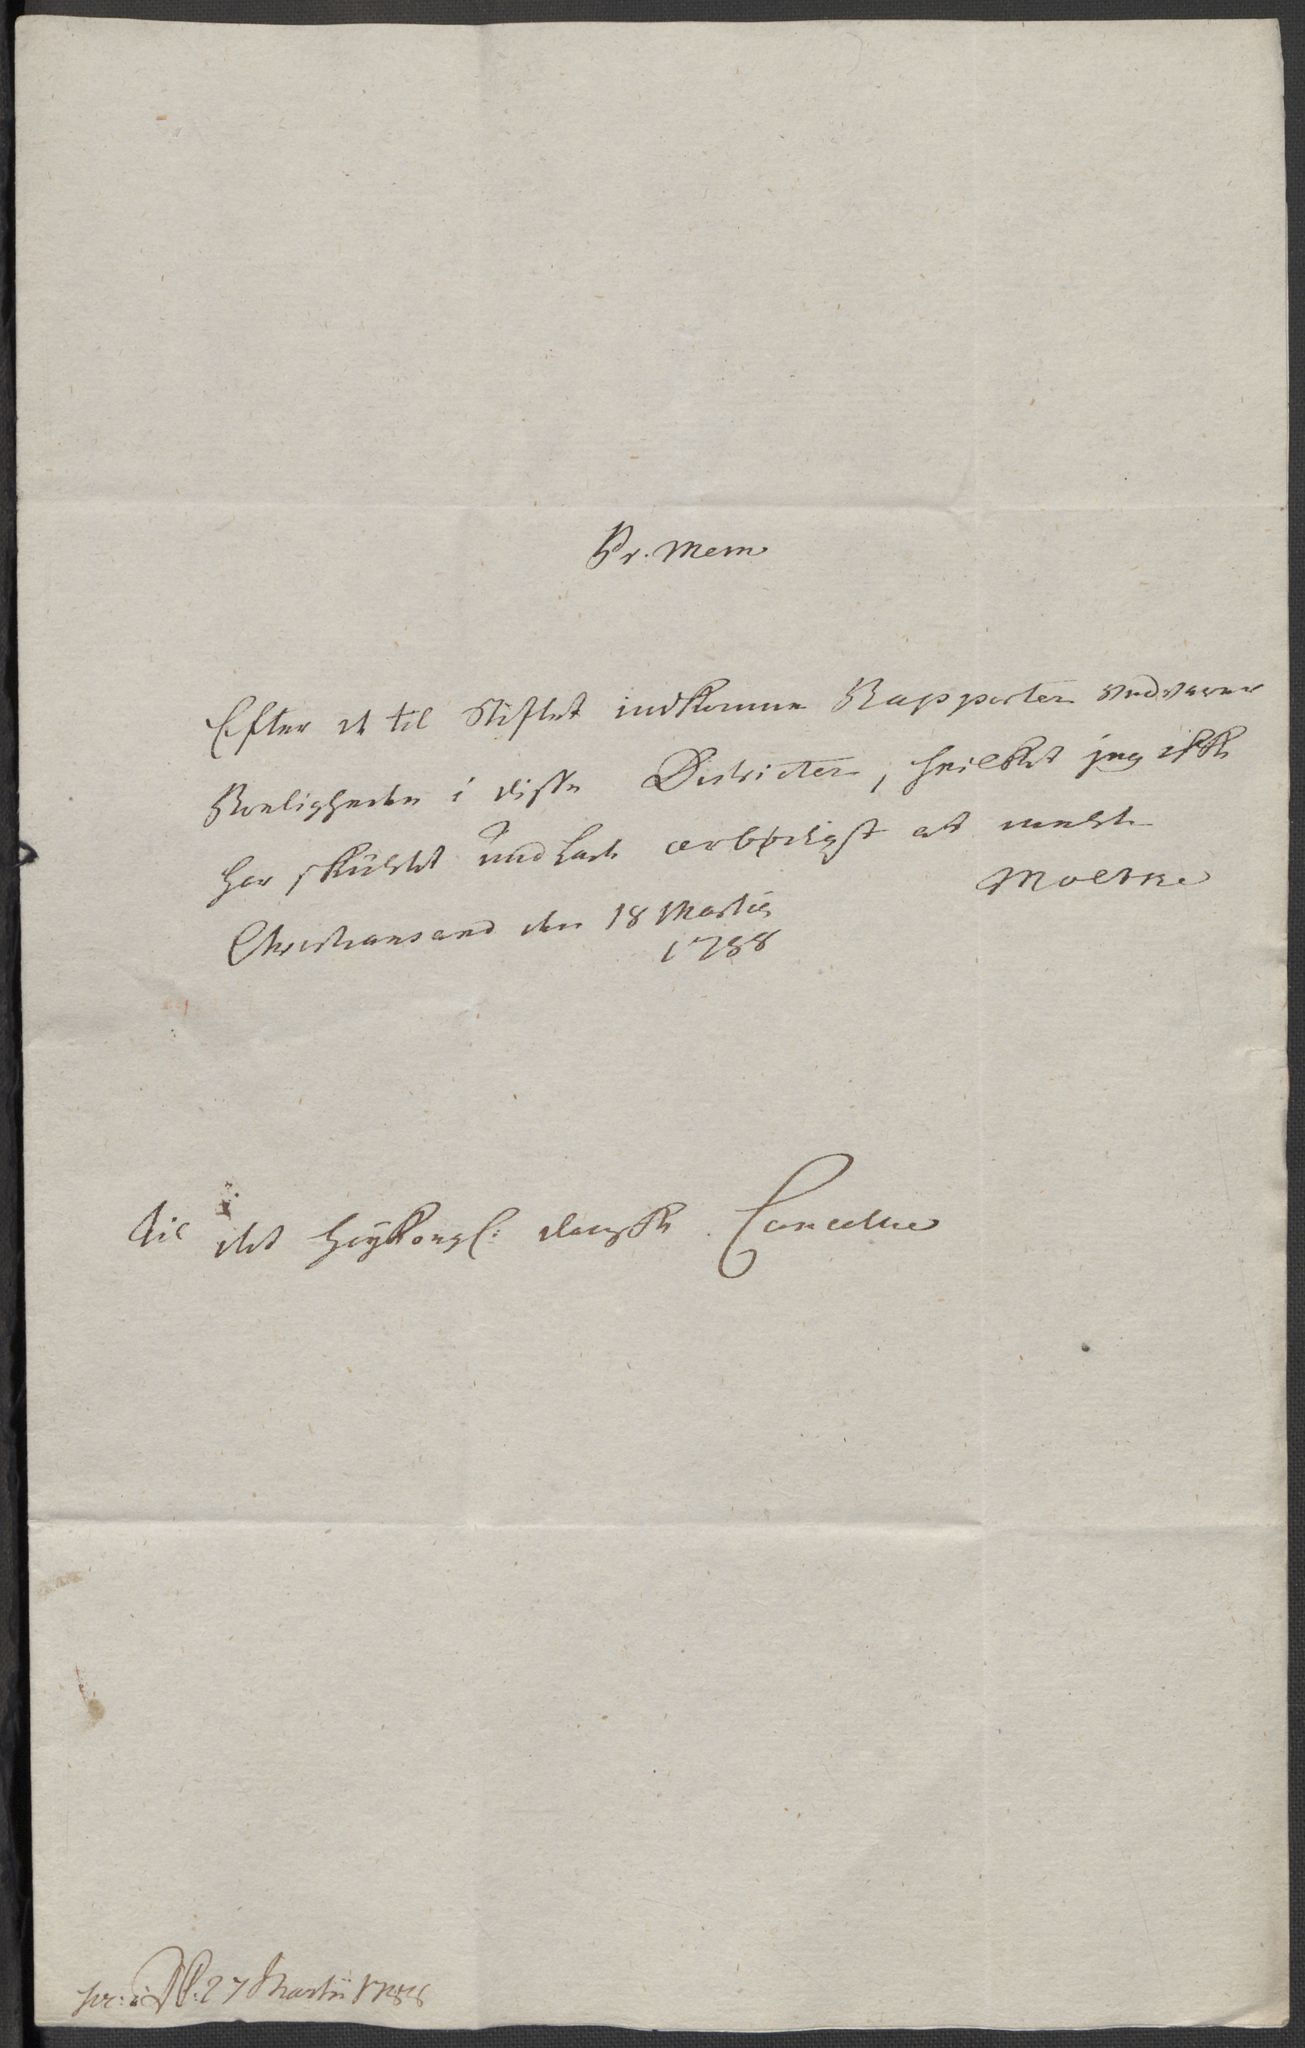 Pr. Mem
Efter de til Stiftet indkomne Rapporter vedvarer
Roeligheden i disse Districter, hvilket jeg ikke
har skuldet undlade ærbødigst at melde
Christiansand den 18 Martii
1788
Moltke
til det høykongl: danske Cancellie
pr: i D C: 27 Martii 1788